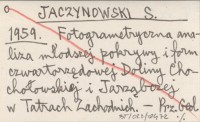 JACZYNOWSKI S.
1959. Fotogrametryczna ana-
liza młodszej pokrywy i form
czwartorzędowej Doliny Cho-
chołowskiej i Jarząbczej
w Tatrach Zachodnich. — Prz. Geol.